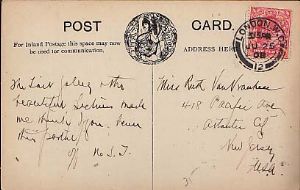 POST CARD.
For Inland Postage this space may now
be used for communication.
ADDRESS HERE
LONDON
JU 25
08
12
The Tait Gallery & the
beautiful
made
me think of you. Hence
this postal
Miss Ruth Van
418 Pacific Ave
Atlantic City
New Jersey
USA